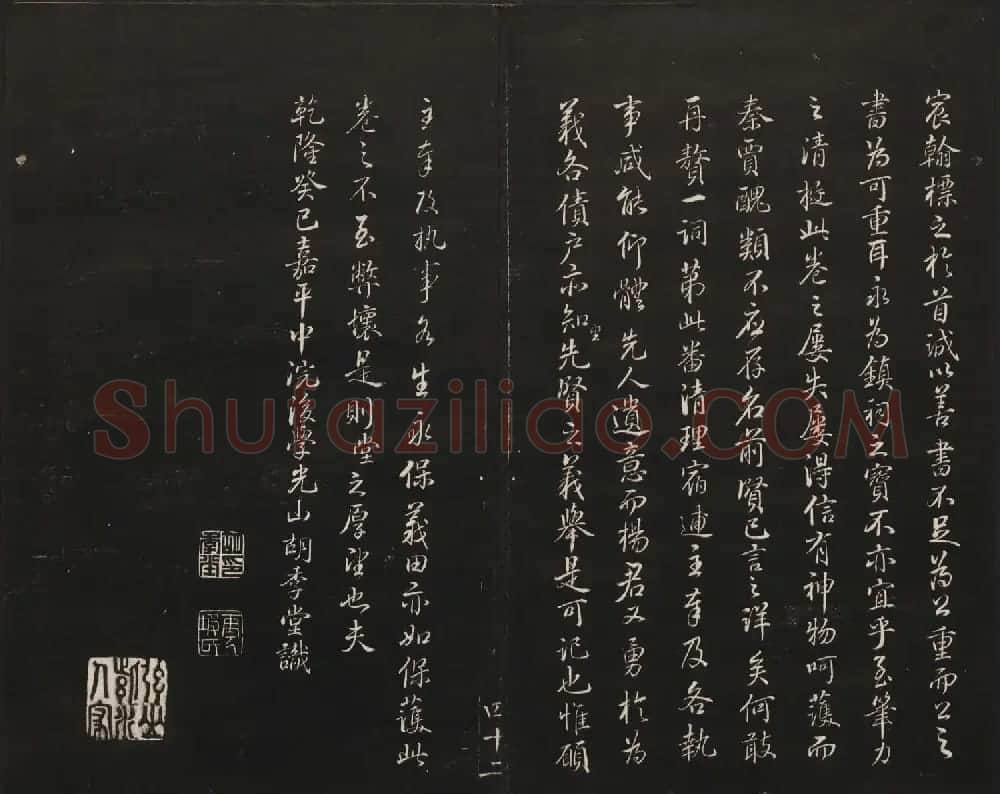 宸翰標之於首誠以善書不足為公重而公之
書為可重耳永為鎮祠之寶不亦宜乎至筆力
之清挺此卷之屢失屢得信有神物呵護而
秦賈醜類不应存名前賢已言之詳矣何敢
再贅一詞第此番清理宿逋主奉及各執
事咸能仰體先人遺意而楊君又勇於為
義各債戶亦知先賢之義舉是可记也惟願
主奉及执事各生永保義田亦如保護此
卷之不至弊壞是則堂之厚望也夫
乾隆癸巳嘉平中浣後學光山胡季堂識
四十二
Shufaziliao.COM